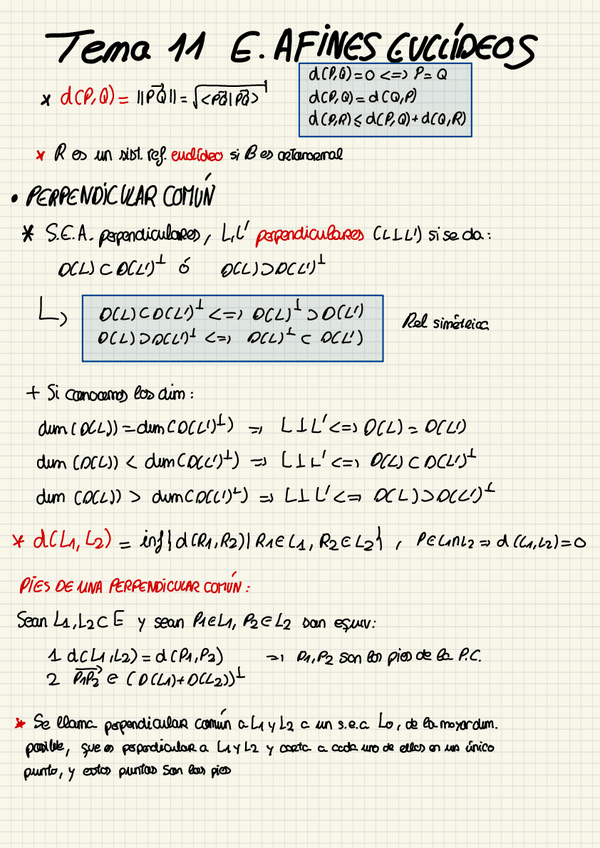 Tema 11 E. AFINES EUCLÍDEOS
* d(P,Q) = ||PQ|| = √<PQ|PQ>
d(P,Q)=0 <=> P=Q
d(P,Q)=d(Q,P)
d(P,R)≤d(P,Q)+d(Q,R)
* R es un sist. ref. euclídeo si B es ortonormal
• PERPENDICULAR COMÚN
* S.E.A. perpendiculares, L,L' perpendiculares (L⊥L') si se da:
D(L)⊂D(L')⊥ ó D(L)⊃D(L')⊥
↳ D(L)⊂D(L')⊥ <=> D(L)⊥⊃D(L')
D(L)⊃D(L')⊥ <=> D(L)⊥⊂D(L')
Rel simétrica
+ Si conocemos los dim:
dim(D(L))=dim(D(L')⊥) => L⊥L' <=> D(L)=D(L')
dim(D(L)) < dim(D(L')⊥) => L⊥L' <=> D(L)⊂D(L')⊥
dim(D(L)) > dim(D(L')⊥) => L⊥L' <=> D(L)⊃D(L')⊥
* d(L1,L2) = inf{d(R1,R2)|R1∈L1, R2∈L2}, P∈L1∩L2 => d(L1,L2)=0
PIES DE UNA PERPENDICULAR COMÚN:
Sean L1,L2⊂E y sean P1∈L1, P2∈L2 son equiv:
1 d(L1,L2)=d(P1,P2) => P1,P2 son los pies de la P.C.
2 P1P2 ∈ (D(L1)+D(L2))⊥
* Se llama perpendicular común a L1 y L2 a un s.e.a L0, de la mayor dim.
posible, que es perpendicular a L1 y L2 y corta a cada uno de ellos en un único
punto, y estos puntos son los pies